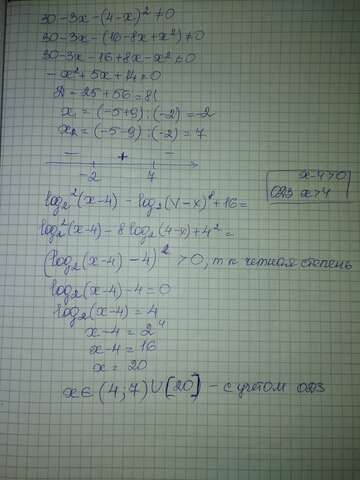 30-3x-(4-x)² ≠0
30-3x-(16-8x+x²)≠0
30-3x-16+8x-x²≠0
-x²+5x+14=0
D=25+56=81
x₁=(-5+9):(-2)=-2
x₂=(-5-9):(-2)=7
- + -
-2 7
x-4>0
ОДЗ x>4
log₂²(x-4)-log₂(4-x)⁸+16=
log₂²(x-4)-8log₂(4-x)+4²=
(log₂(x-4)-4)²>0, т к четная степень
log₂(x-4)-4=0
log₂(x-4)=4
x-4=2⁴
x-4=16
x=20
x∈(4,7)∪[20] - с учетом ОДЗ